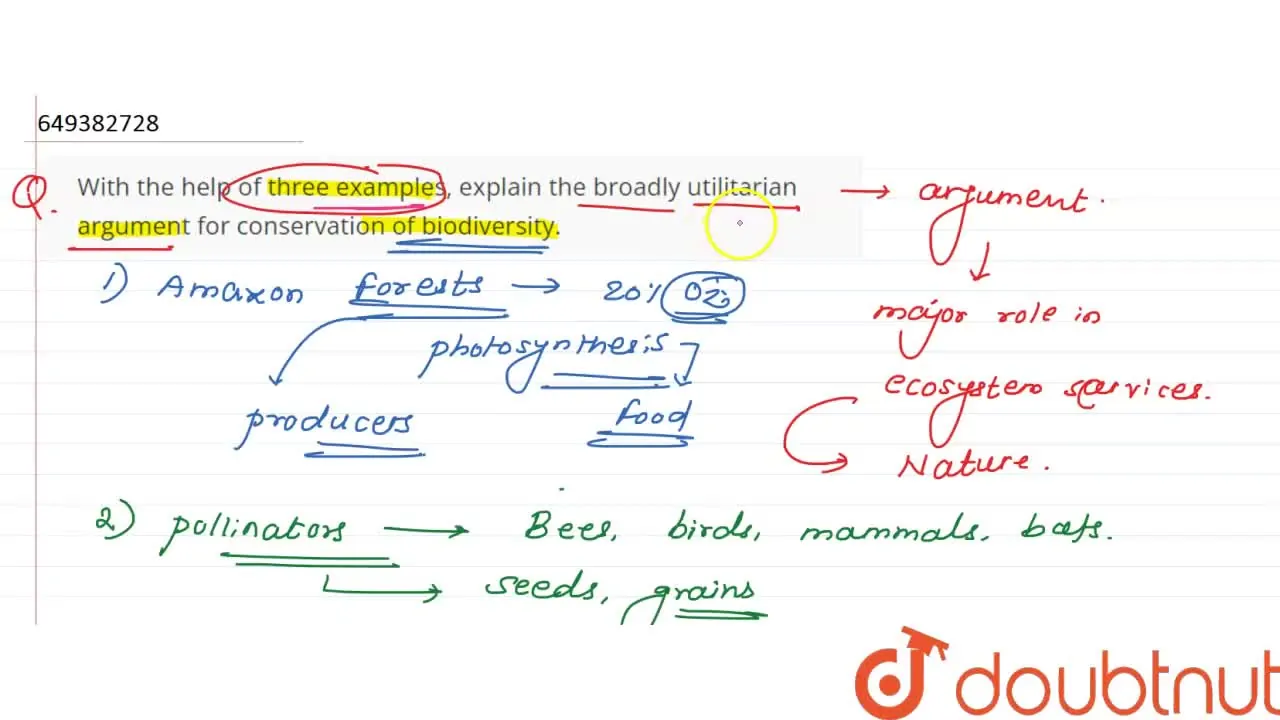 649382728
Q. With the help of three examples, explain the broadly utilitarian
argument for conservation of biodiversity.
→ argument.
major role in
ecosystem services.
Nature.
1) Amazon forests → 20% O2
photosynthesis
producers
food
2) pollinators → Bees, birds, mammals, bats.
seeds, grains
doubtnut